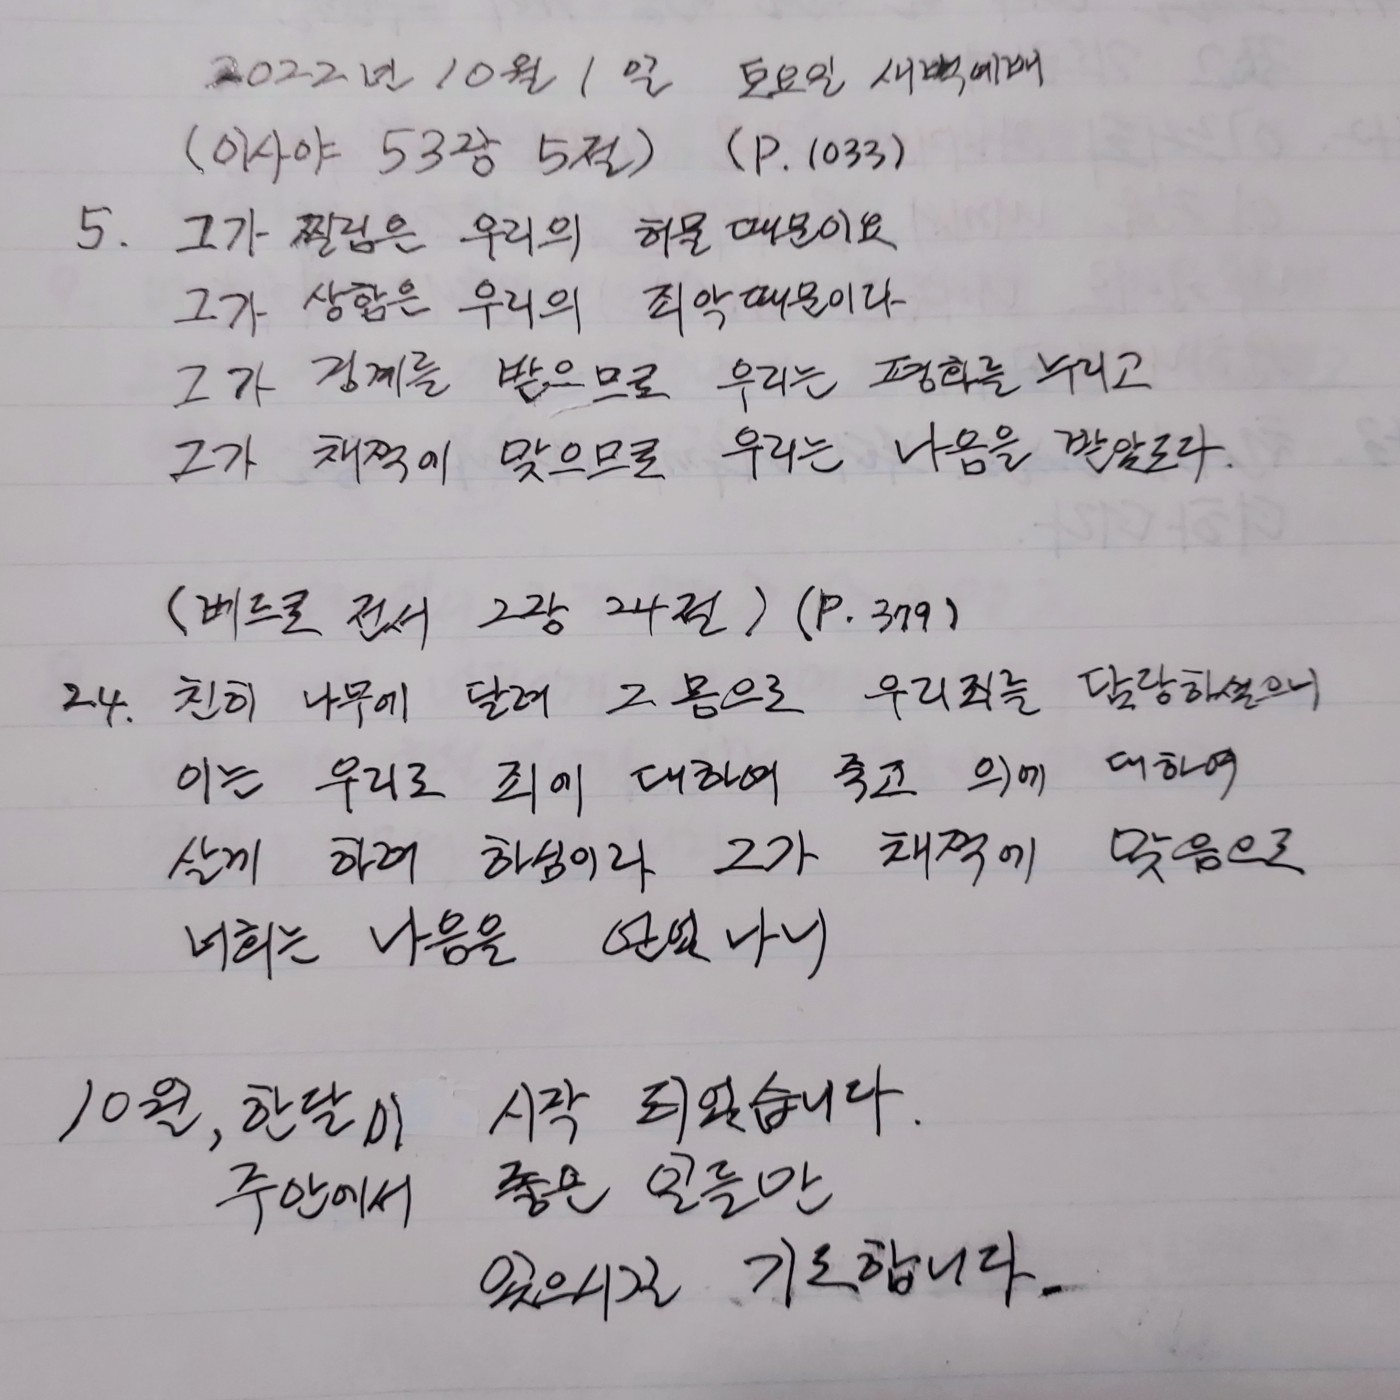 2022년 10월 1일 토요일 새벽예배
(이사야 53장 5절) (P.1033)
5. 그가 찔림은 우리의 허물 때문이요
그가 상함은 우리의 죄악 때문이라
그가 징계를 받으므로 우리는 평화를 누리고
그가 채찍에 맞으므로 우리는 나음을 받았도다.
(베드로 전서 2장 24절) (P.379)
24. 친히 나무에 달려 그 몸으로 우리 죄를 담당하셨으니
이는 우리로 죄에 대하여 죽고 의에 대하여
살게 하려 하심이라 그가 채찍에 맞음으로
너희는 나음을 얻었나니
10월, 한달이 시작 되었습니다.
주안에서 좋은 일들만
있으시길 기도합니다.